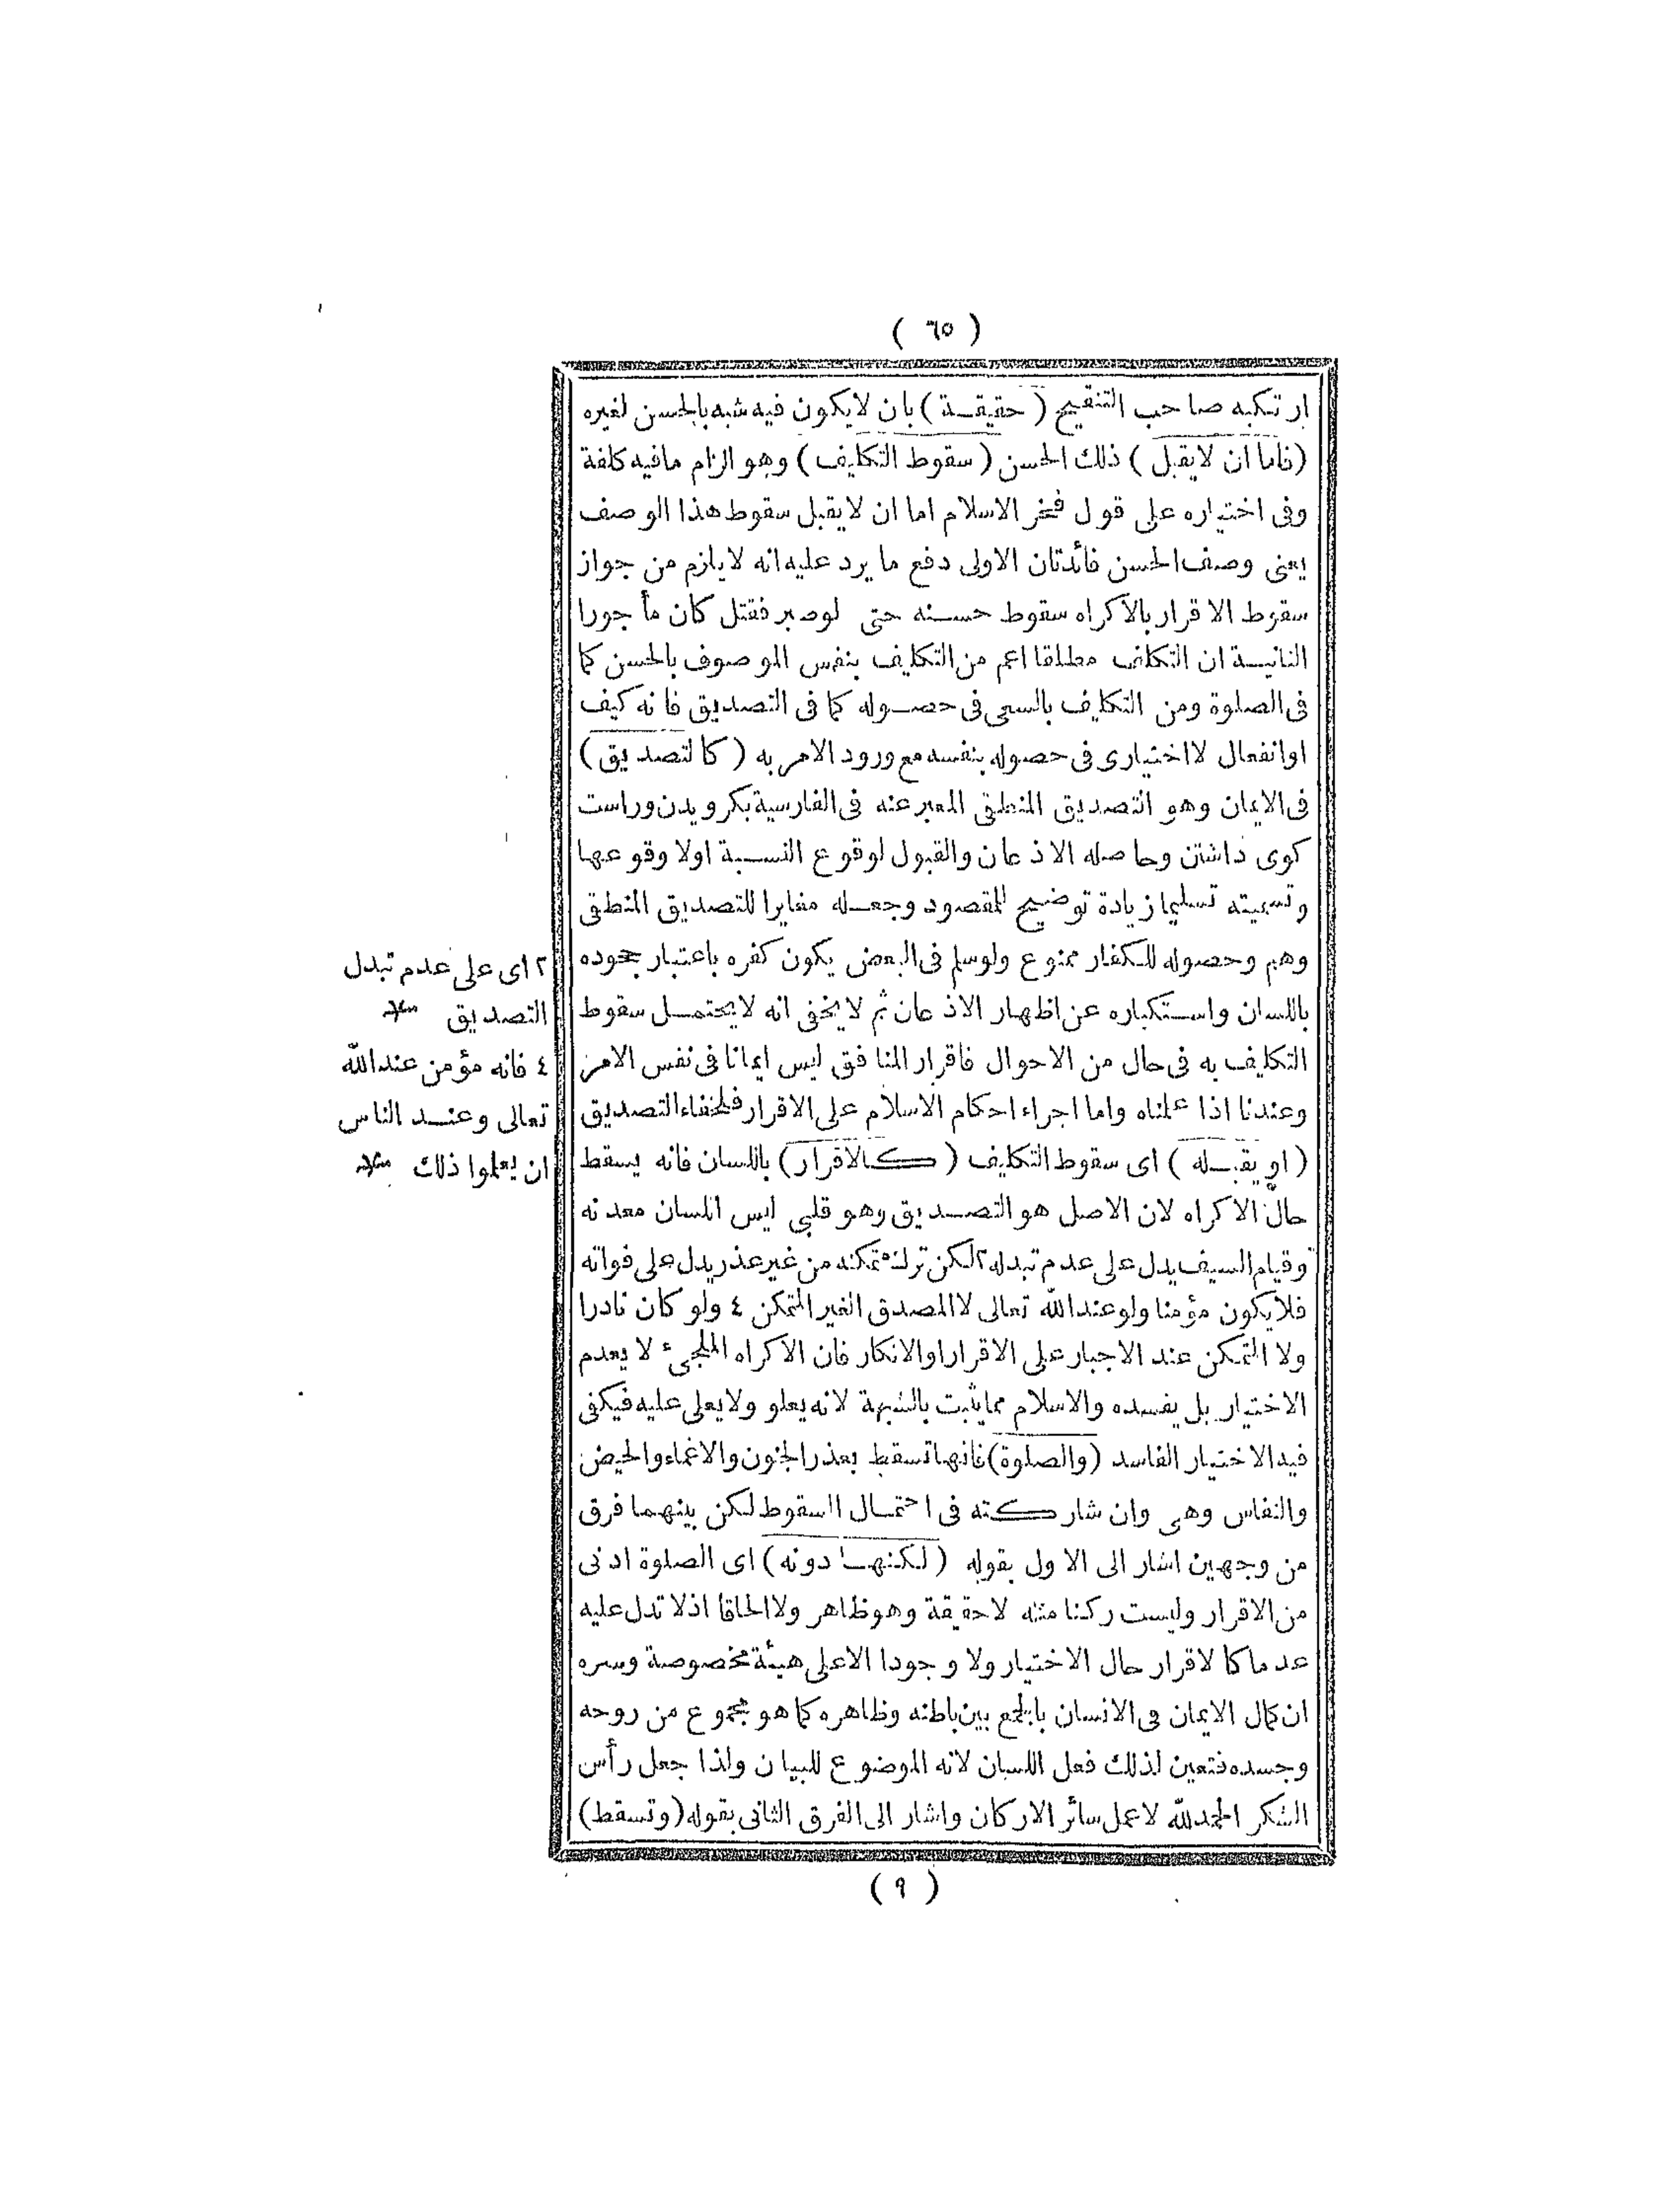 ( ٦٥ )
ارتكبه صاحب التنقيح ( حقيقة ) بان لايكون فيه شبه بالحسن لغيره
(فاما ان لايقبل ) ذلك الحسن ( سقوط التكليف ) وهو الزام مافيه كلفة
وفى اختياره على قول فخر الاسلام اما ان لايقبل سقوط هذا الوصف
يعنى وصف الحسن فائدتان الاولى دفع ما يرد عليه انه لايلزم من جواز
سقوط الاقرار بالاكراه سقوط حسنه حتى لوصبر فقتل كان مأجورا
الثانية ان التكليف مطلقا اعم من التكليف بنفس الموصوف بالحسن كما
فى الصلوة ومن التكليف بالسعى فى حصوله كما فى التصديق فانه كيف
اوانفعال لااختيارى فى حصوله بنفسه مع ورود الامر به ( كالتصديق )
فى الايمان وهو التصديق المنطقى المعبر عنه فى الفارسية بكرويدن وراست
كوى داشتن وحاصله الاذعان والقبول لوقوع النسبة اولا وقوعها
وتسميته تسليما زيادة توضيح للمقصود وجعله مغايرا للتصديق المنطقى
وهم وحصوله للكفار ممنوع ولوسلم فى البعض يكون كفره باعتبار جحوده
باللسان واستكباره عن اظهار الاذعان ثم لايخفى انه لايحتمل سقوط
التكليف به فى حال من الاحوال فاقرار المنافق ليس ايمانا فى نفس الامر
وعندنا اذا علمناه واما اجراء احكام الاسلام على الاقرار فلخفاء التصديق
( او يقبله ) اى سقوط التكليف ( كالاقرار ) باللسان فانه يسقط
حال الاكراه لان الاصل هو التصديق وهو قلبى ليس اللسان معدنه
وقيام السيف يدل على عدم تبدله ٢ لكن ترك متمكنه من غير عذر يدل على فواته
فلايكون مؤمنا ولو عندالله تعالى لاالمصدق الغير المتمكن ٤ ولو كان نادرا
ولا المتمكن عند الاجبار على الاقرار اوالانكار فان الاكراه الملجىء لا يعدم
الاختيار بل يفسده والاسلام مما يثبت بالشبهة لانه يعلو ولايعلى عليه فيكفى
فيه الاختيار الفاسد (والصلوة) فانها تسقط بعذر الجنون والاغماء والحيض
والنفاس وهى وان شاركته فى احتمال السقوط لكن بينهما فرق
من وجهين اشار الى الاول بقوله ( لكنها دونه ) اى الصلوة ادنى
من الاقرار وليست ركنا منه لاحقيقة وهو ظاهر ولاالحاقا اذلا تدل عليه
عدما كالاقرار حال الاختيار ولا وجودا الاعلى هيئة مخصوصة وسره
ان كمال الايمان فى الانسان بالجمع بين باطنه وظاهره كما هو مجموع من روحه
وجسده فتعين لذلك فعل اللسان لانه الموضوع للبيان ولذا جعل رأس
الشكر الحمدلله لاعمل سائر الاركان واشار الى الفرق الثانى بقوله (وتسقط)
٢ اى على عدم تبدل
التصديق
٤ فانه مؤمن عندالله
تعالى وعند الناس
ان يعلموا ذلك
( ٩ )